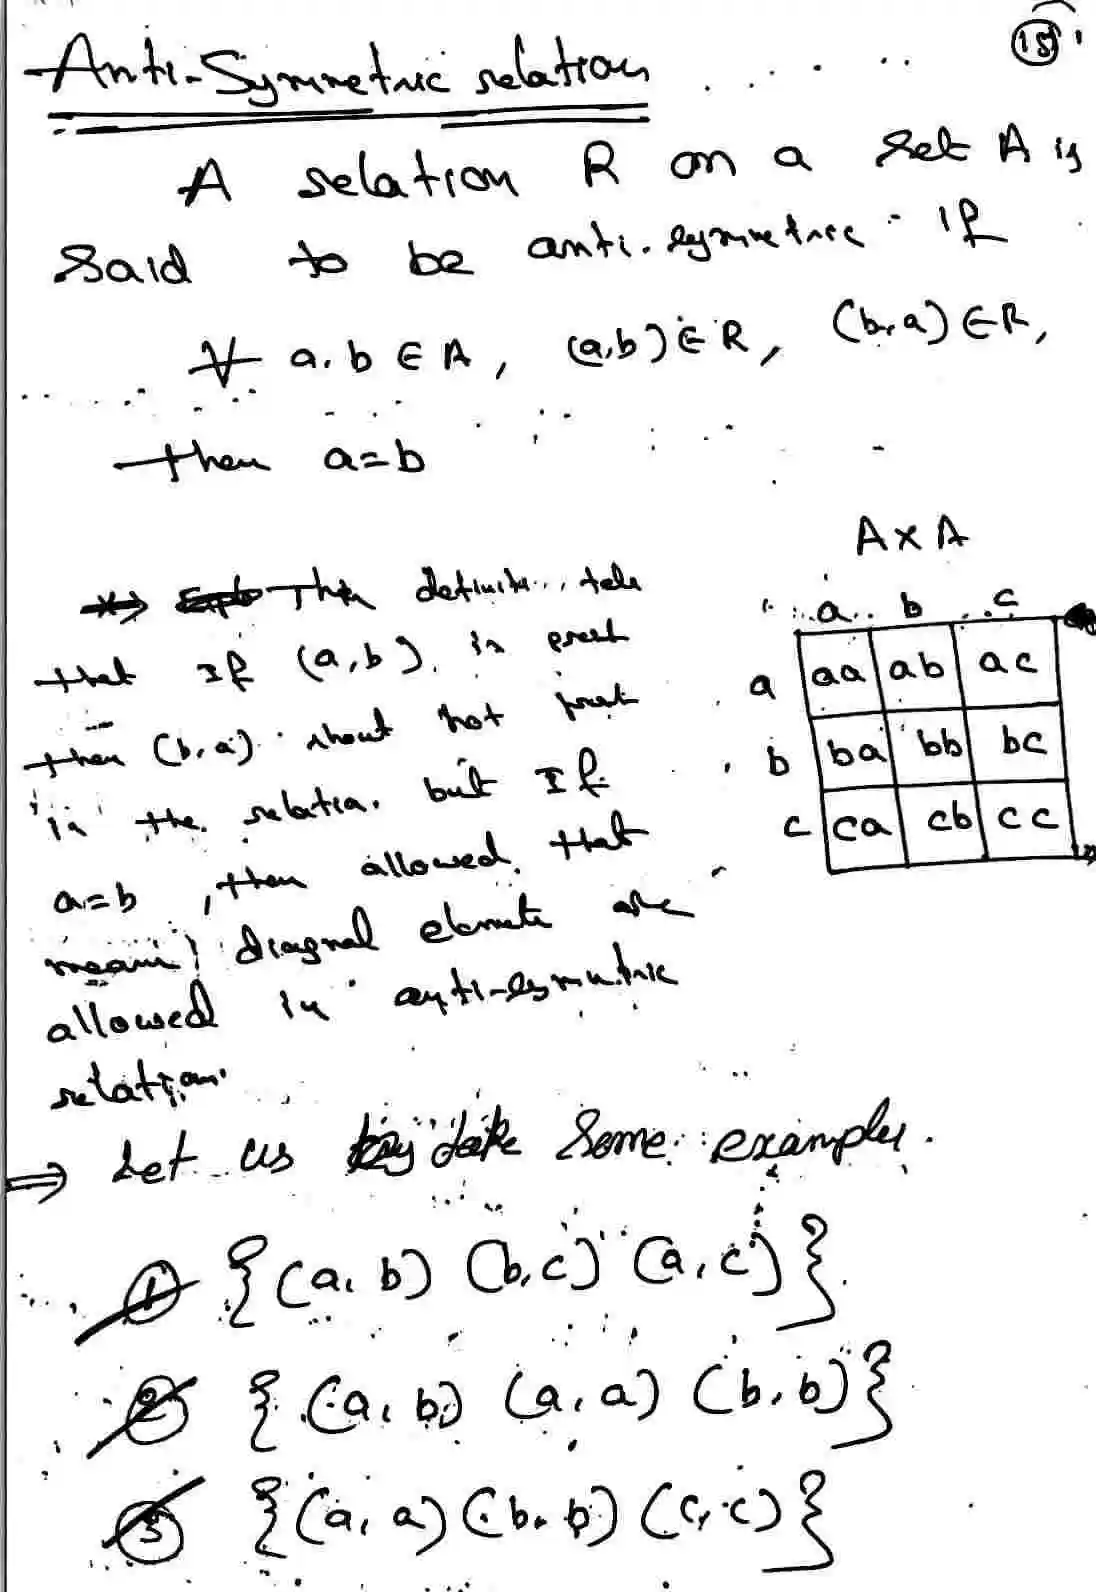 15
Anti-Symmetric relation
A relation R on a set A is
said to be anti-symmetric if
∀ a, b ∈ A, (a,b) ∈ R, (b,a) ∈ R,
then a=b
A x A
a b c
a aa ab ac
b ba bb bc
c ca cb cc
that If (a,b) is
then (b,a) not
in the relation, but If
a=b, then allowed that
mean diagnal elements are
allowed in anti-symmetric
relation.
⇒ Let us take Some examples.
① {(a, b) (b, c) (a, c)}
② {(a, b) (a, a) (b, b)}
③ {(a, a) (b, b) (c, c)}